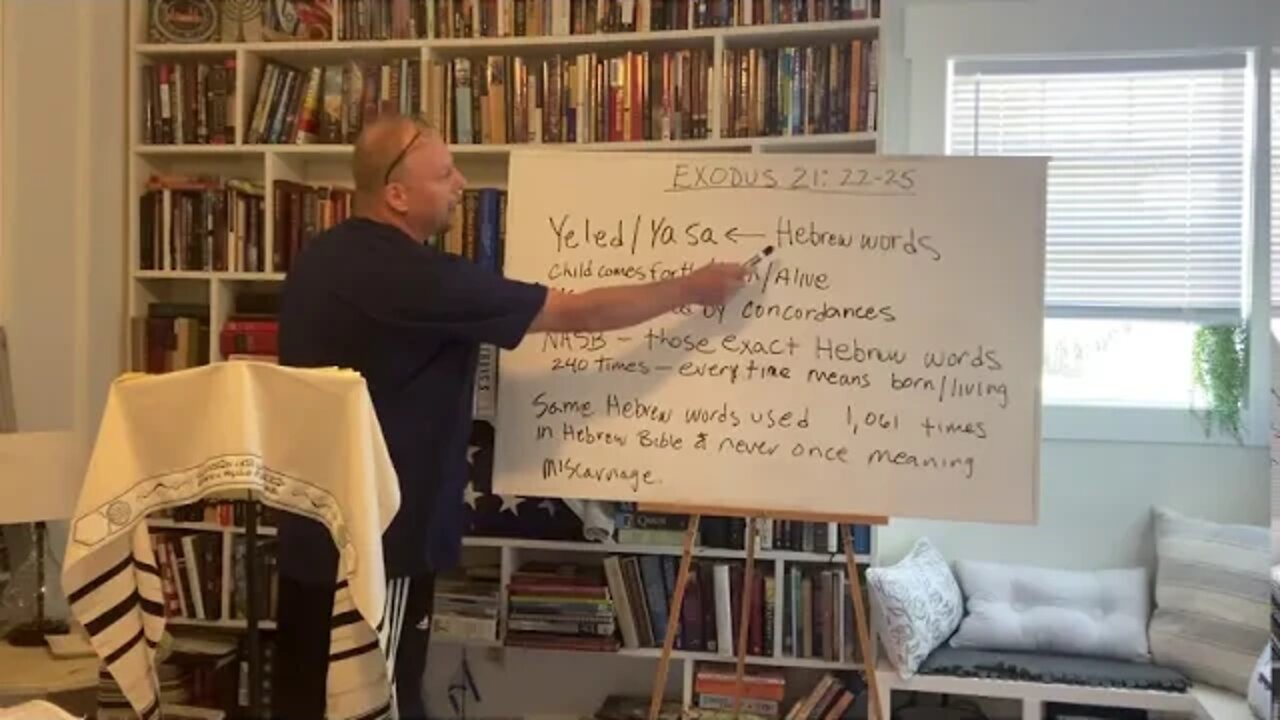 EXODUS 21: 22-25
Yeled/Yasa ← Hebrew words
Child comes forth /Alive
by concordances
NASB - those exact Hebrew words
240 times - every time means born/living
Same Hebrew words used 1,061 times
in Hebrew Bible & never once meaning
miscarriage.